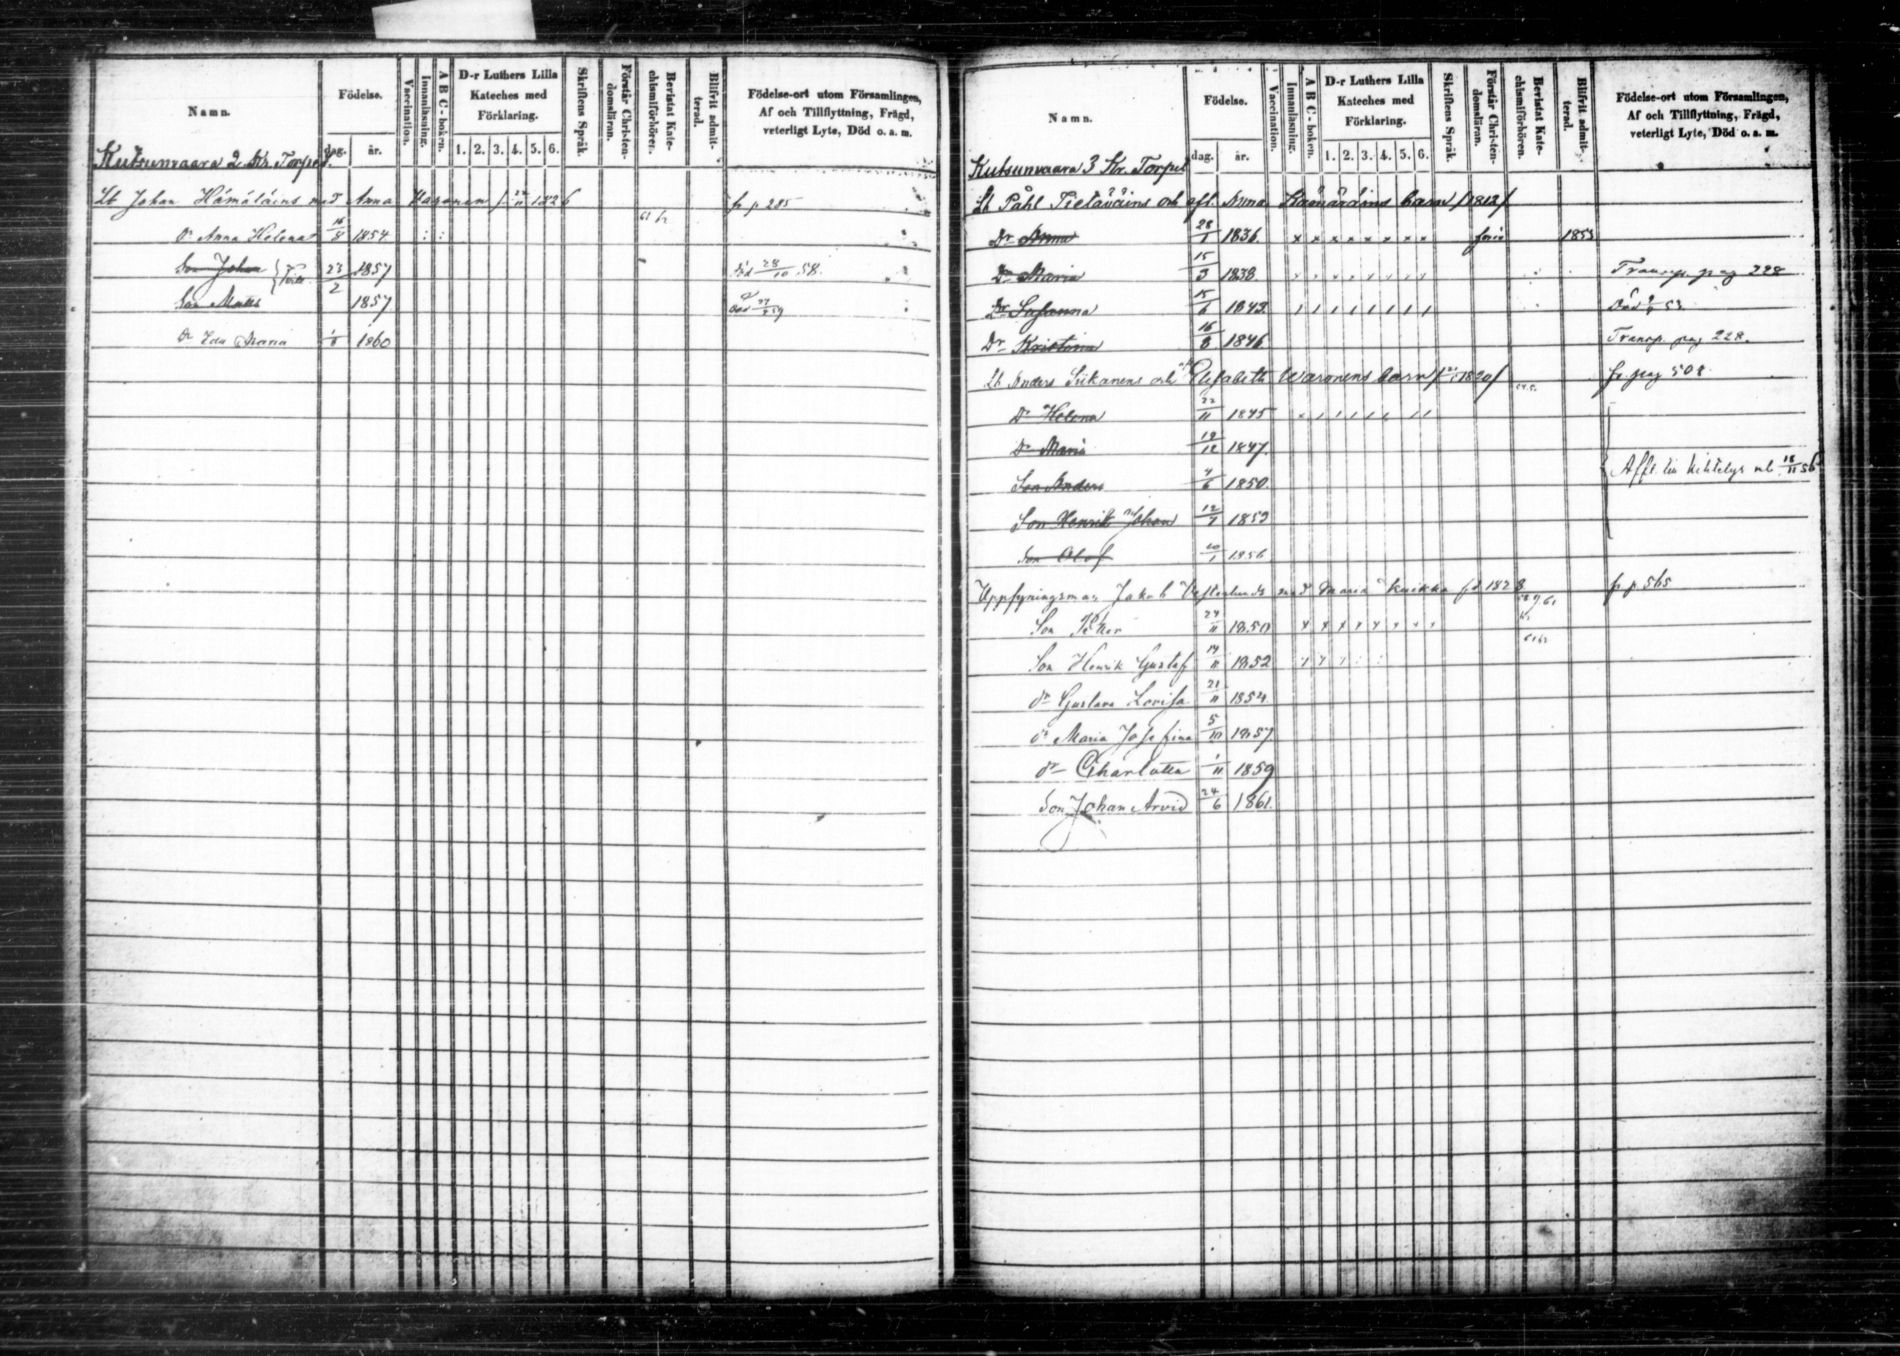 Namn.
Födelse.
dag. år.
Vaccination.
Innanläsning.
A B C-boken.
D-r Luthers Lilla Kateches med Förklaring.
1. 2. 3. 4. 5. 6.
Skriftens Språk.
Förstår Chris-ten-domsläran.
Bevistat Kate-chismiförhören.
Blifvit admit-terad.
Födelse-ort utom Församlingen, Af och Tillflyttning, Frägd, veterligt Lyte, Död o. a. m.
Kutsunvaara 2. Kr. Torpet.
Lt Johan Hämäläins med Anna Hasonen f. 22/11 1826 fr p 285
dr Anna Helena 16/8 1854
Son Johan 23/2 1857 död 28/10 58.
Son Matts 1857
dr Eda Maria 1860
Namn.
Födelse.
dag. år.
Vaccination.
Innanläsning.
A B C-boken.
D-r Luthers Lilla Kateches med Förklaring.
1. 2. 3. 4. 5. 6.
Skriftens Språk.
Förstår Chris-ten-domsläran.
Bevistat Kate-chismiförhören.
Blifvit admit-terad.
Födelse-ort utom Församlingen, Af och Tillflyttning, Frägd, veterligt Lyte, Död o. a. m.
Kutsunvaara 3 Kr. Torpet
Lt Påhl Tietäväins och afl. Anna barn /1812/
Dr Anna 28/1 1836. 1853
Dr Maria 15/3 1838. Transp. pag 228
Dr Susanna 15/6 1843. Död 53.
Dr Kristina 16/8 1846. Transp. pag 228.
Lt Anders Siikanens och Elisabeth Waronens barn 1820/ fr. pag 508
Dr Helena 22/11 1845
Dr Maria 19/12 1847.
Son Anders 4/6 1850.
Son Henrik Johan 12/7 1853
Son Olof 20/1 1856
Afft till 18/11 56
Uppsyningsman Jakob Vesterlunds med Maria Kuikka fd 1828 fr p. 565
Son Peter 24/11 1850
Son Henrik Gustaf 14/11 1852
dr Gustava Lovisa 21/11 1854.
dr Maria Josefina 5/10 1857
dr Charlotta 1/11 1859
Son Johan Arvid 24/6 1861.